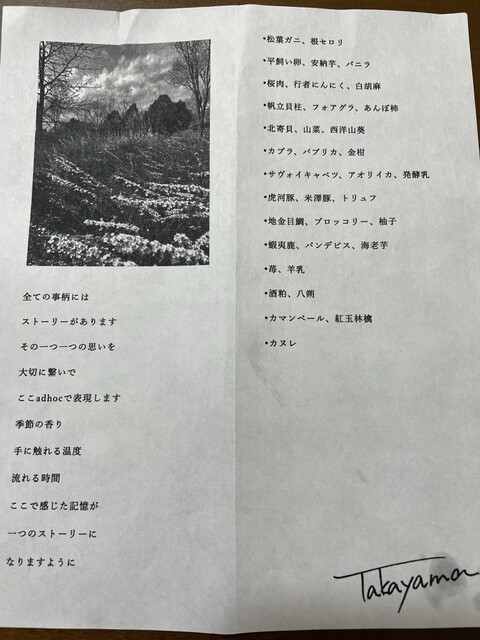 全ての事柄には
ストーリーがあります
その一つ一つの思いを
大切に繋いで
ここadhocで表現します
季節の香り
手に触れる温度
流れる時間
ここで感じた記憶が
一つのストーリーに
なりますように
•松葉ガニ、根セロリ
•平飼い卵、安納芋、バニラ
•桜肉、行者にんにく、白胡麻
•帆立貝柱、フォアグラ、あんぽ柿
•北寄貝、山菜、西洋山葵
•カブラ、パプリカ、金柑
•サヴォイキャベツ、アオリイカ、発酵乳
•虎河豚、米澤豚、トリュフ
•地金目鯛、ブロッコリー、柚子
•蝦夷鹿、パンデピス、海老芋
•苺、羊乳
•酒粕、八朔
•カマンベール、紅玉林檎
•カヌレ
Takayama